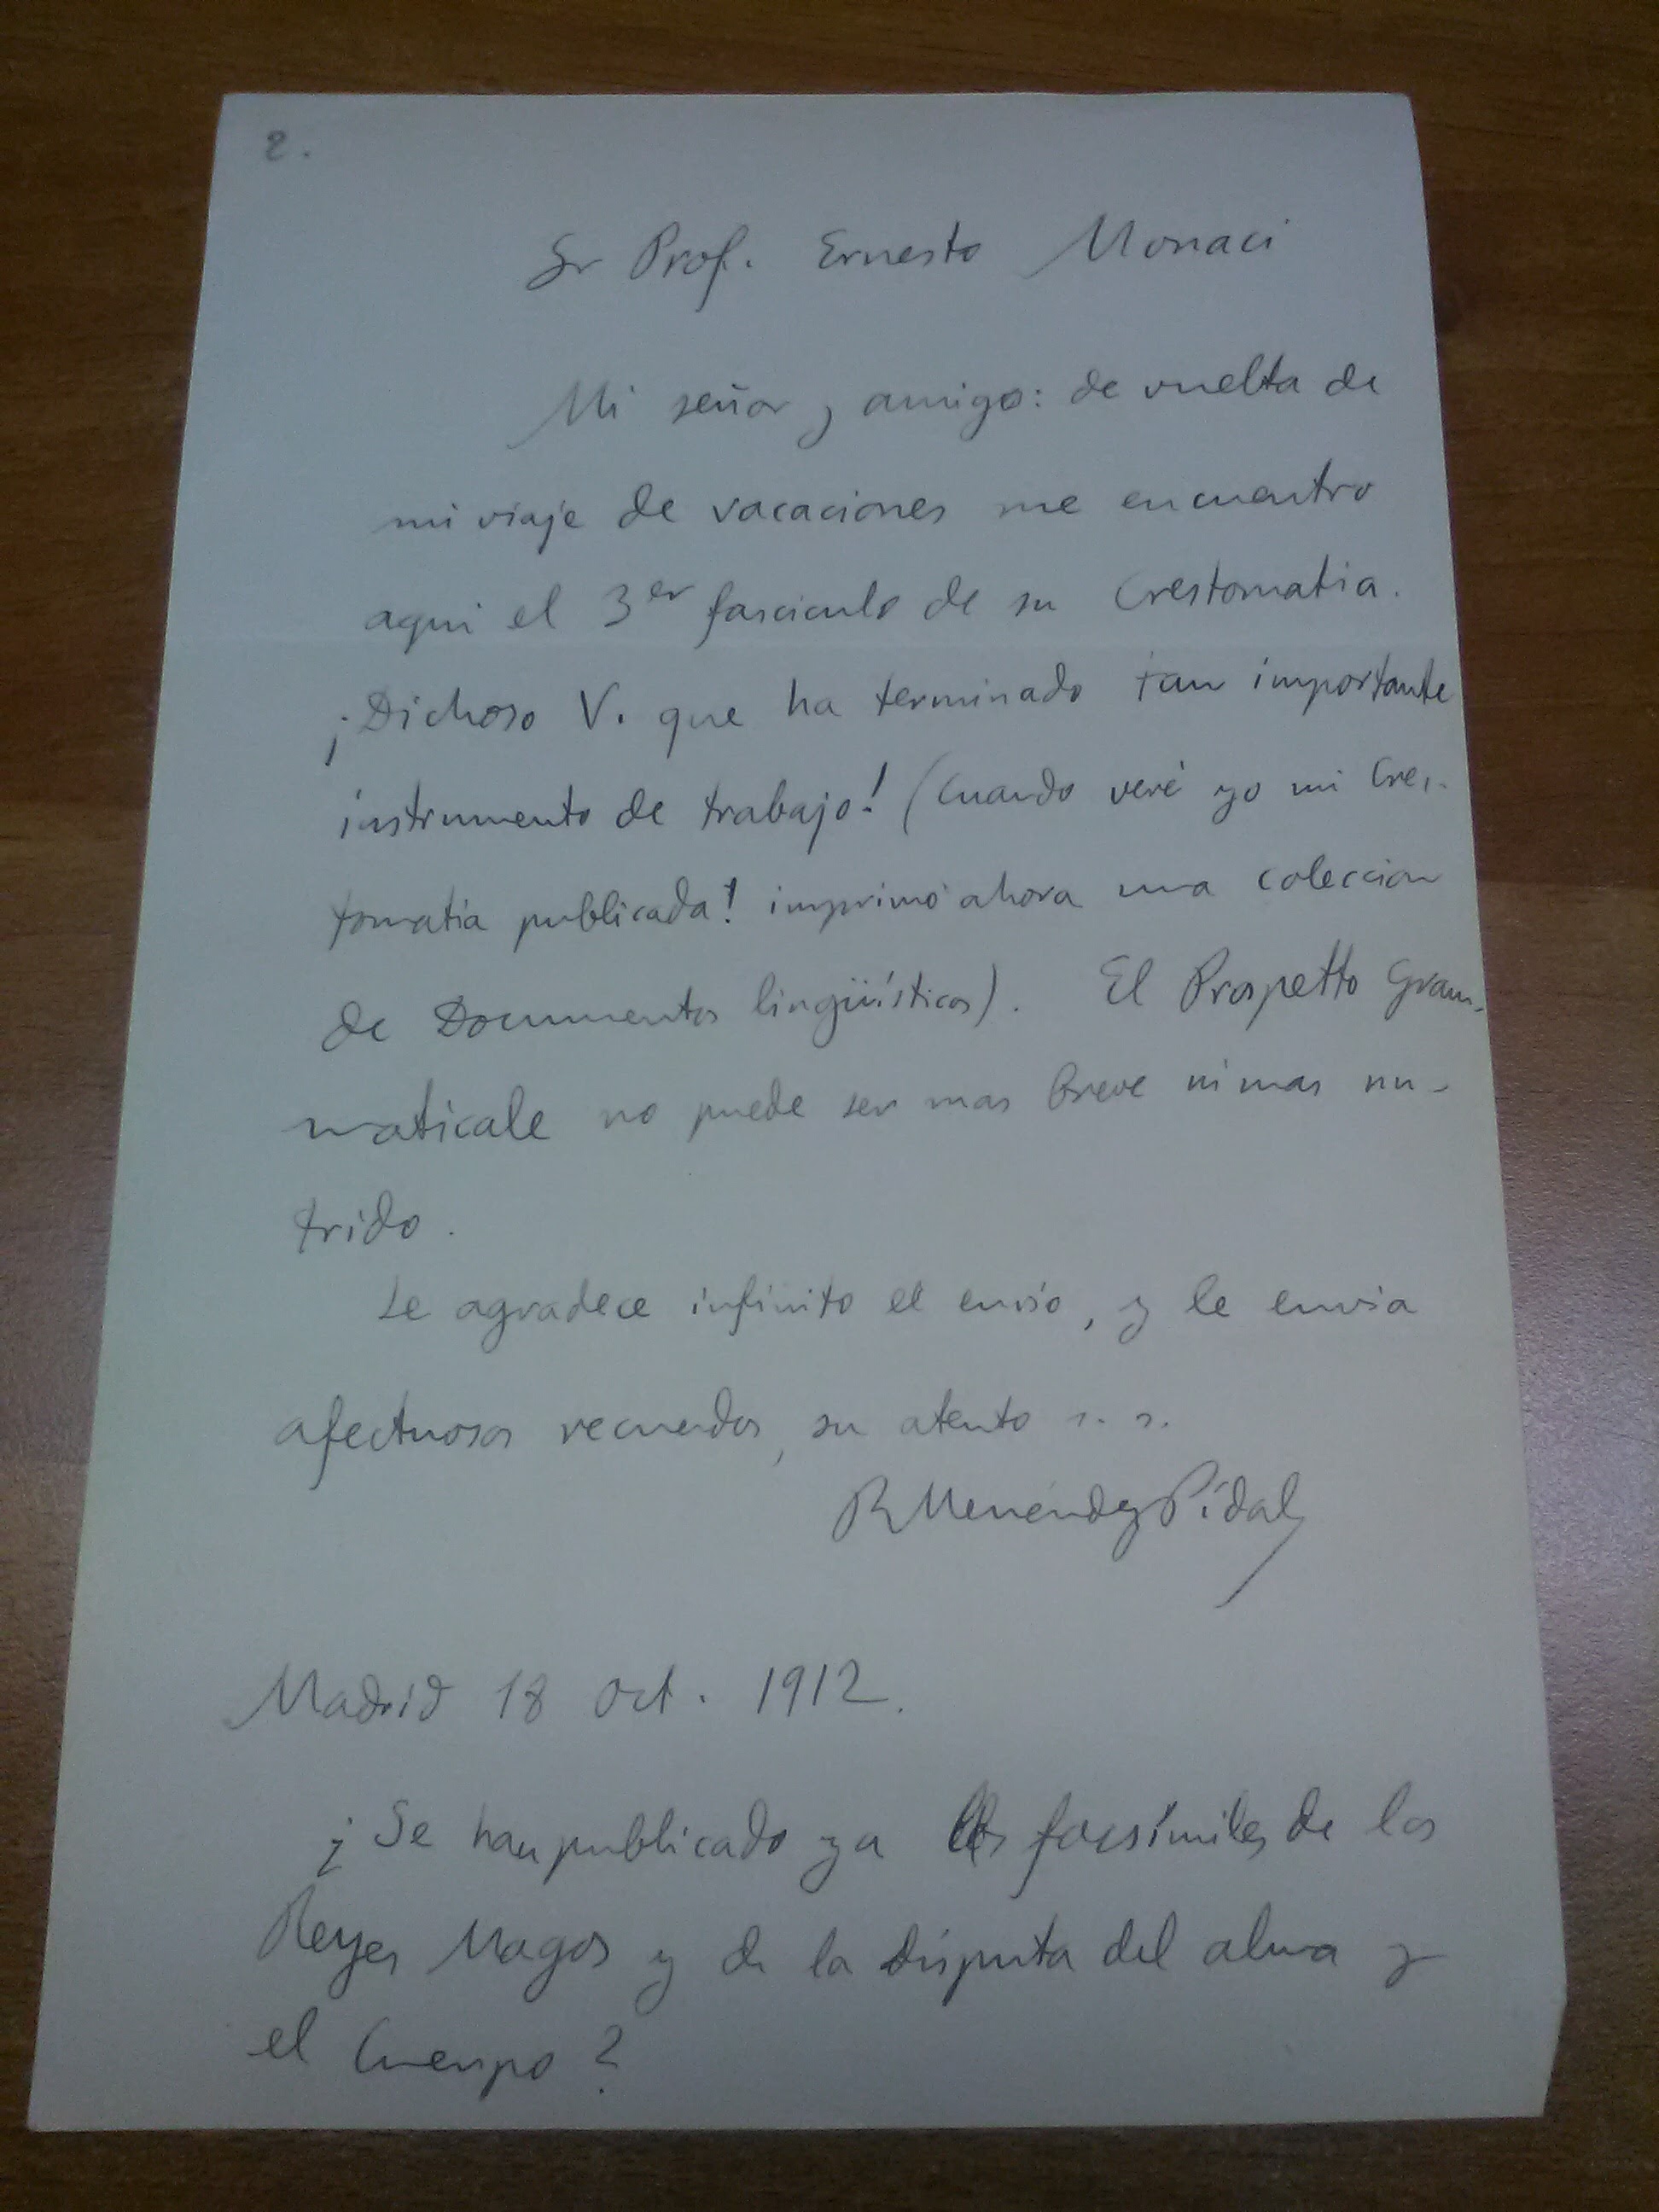 2.
Sr Prof. Ernesto Monaci
Mi señor y amigo: de vuelta de
mi viaje de vacaciones me encuentro
aqui el 3er fasciculo de su Crestomatia.
¡Dichoso V. que ha terminado tan importante
instrumento de trabajo! (Cuando veré yo mi Cres-
tomatia publicada! imprimo ahora una coleccion
de Documentos lingüísticos). El Prospetto Gram-
maticale no puede ser mas breve ni mas nu-
trido.
Le agradece infinito el envio, y le envia
afectuosos recuerdos, su atento s. s.
R Menéndez Pidal
Madrid 18 Oct. 1912.
¿Se han publicado ya los facsímiles de los
Reyes Magos y de la Disputa del alma y
el Cuerpo?